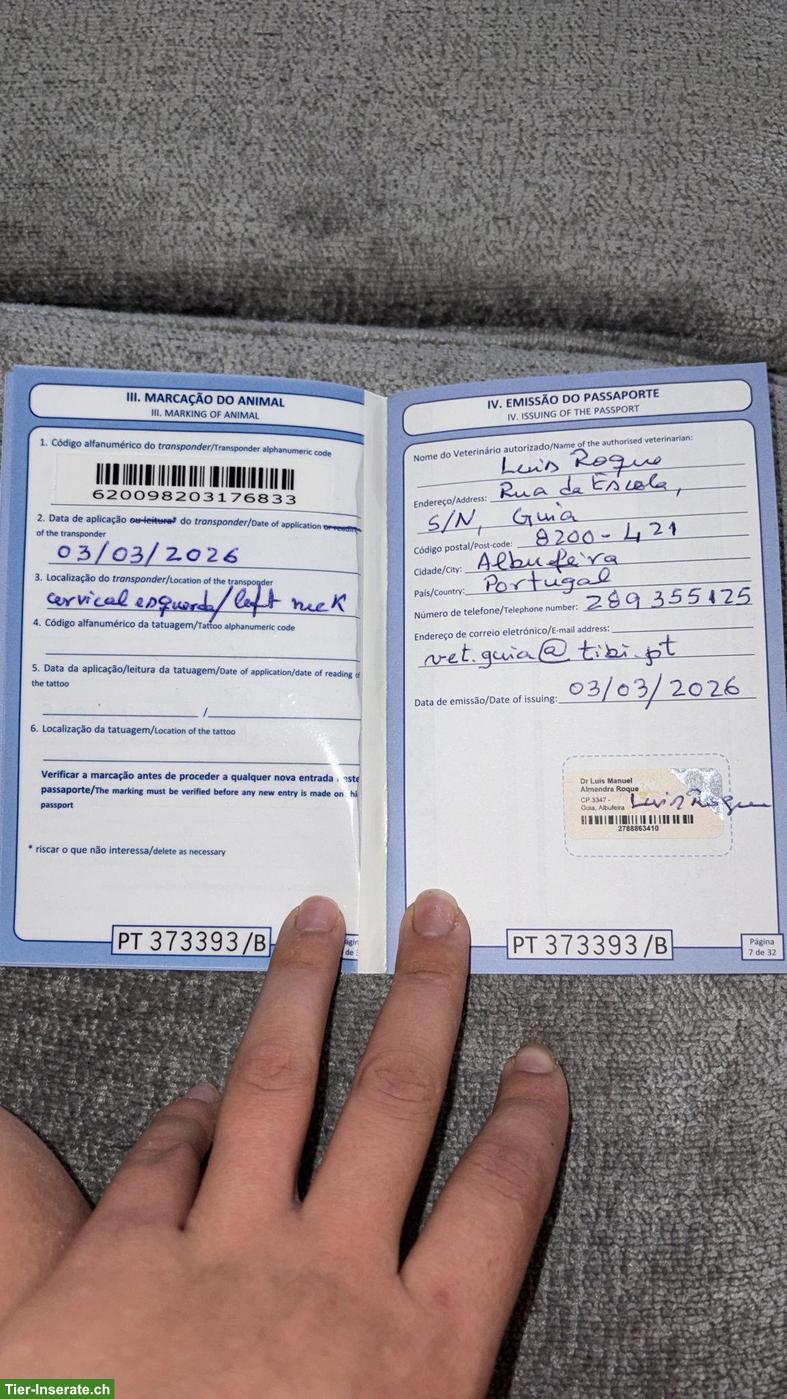 III. MARCAÇÃO DO ANIMAL
III. MARKING OF ANIMAL
1. Código alfanumérico do transponder/Transponder alphanumeric code
620098203176833
2. Data de aplicação ou leitura* do transponder/Date of application or reading
of the transponder
03/03/2026
3. Localização do transponder/Location of the transponder
cervical esquerda/left neck
4. Código alfanumérico da tatuagem/Tattoo alphanumeric code
5. Data da aplicação/leitura da tatuagem/Date of application/date of reading of
the tattoo
/
6. Localização da tatuagem/Location of the tattoo
Verificar a marcação antes de proceder a qualquer nova entrada neste
passaporte/The marking must be verified before any new entry is made on
passport
* riscar o que não interessa/delete as necessary
PT 373393/B
IV. EMISSÃO DO PASSAPORTE
IV. ISSUING OF THE PASSPORT
Nome do Veterinário autorizado/Name of the authorised veterinarian:
Luis Roque
Endereço/Address: Rua da Escola,
S/N, Guia
Código postal/Post-code: 8200-421
Cidade/City: Albufeira
País/Country: Portugal
Número de telefone/Telephone number: 289 355125
Endereço de correio eletrónico/E-mail address:
vet.guia@tibi.pt
Data de emissão/Date of issuing: 03/03/2026
Dr Luis Manuel
Almendra Roque
CP.3347 -
Guia, Albufeira
Luis Roque
2788863410
PT 373393/B
Página
7 de 32
Tier-Inserate.ch